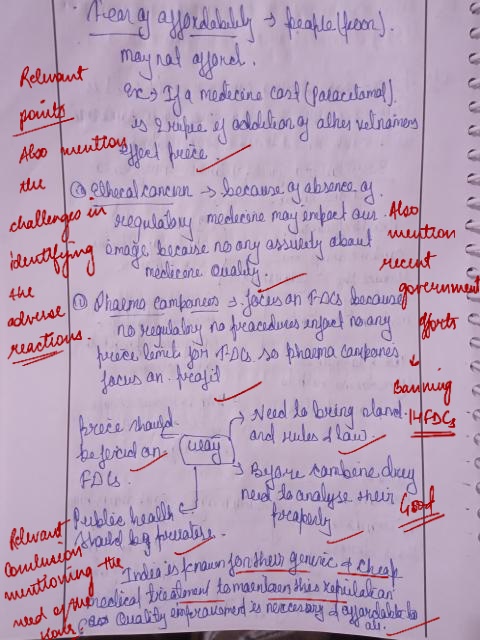 Fear of affordability → people (poor)
may not afford.
Ex → If a medicine cost (paracetamol)
is 2 rupie if addition of other
effect price
⓪ Ethecal cancern → because of absence of
regulatory medecine may empact our
emage because no any assurety about
medicine quality.
⓪ Pharma companees → focus on FDCs because
no regulatory no procedures infact no any
price limit for FDCs so pharma companes
focus on profit
Price should
be ficid on
FDCs.
way
Need to bring a
and rules & law
Before combine drug
need to analyse their
property
Public health
should be
India is known for their generic & cheap
medical treatment to maentaen this reputation
Quality emprovement is necessary & affordable to
all.
Relevant
points
Also mention
the
challenges in
identifying
the
adverse
reactions.
Also
mention
recent
government
efforts
↓
Banning
14 FDCs
Good
Relevant
Conclusion
mentioning the
need of the
hour